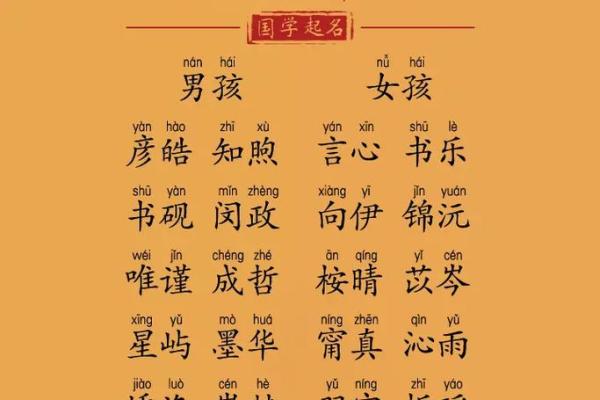 国学起名
nán hái nǚ hái
男孩 女孩
yàn hào zhī xù yán xīn shū lè
彦皓 知煦 言心 书乐
shū yàn mǐn zhèng xiàng yī jǐn yuán
书砚 闵政 向伊 锦沅
wéi jǐn chéng zhé ān qíng yǐ cén
唯谨 成哲 桉晴 苡岑
xīng yǔ mò huá níng zhēn qìn yǔ
星屿 墨华 甯真 沁雨
jiào luò cén hè yǔ níng zhī yáo